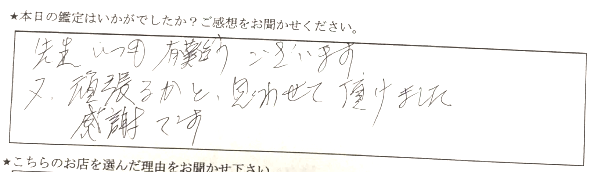 ★本日の鑑定はいかがでしたか？ご感想をお聞かせください。
先生 いつも 有難う ございます
又、頑張るかと、思わせて頂けました
感謝です
★こちらのお店を選んだ理由をお聞かせ下さい